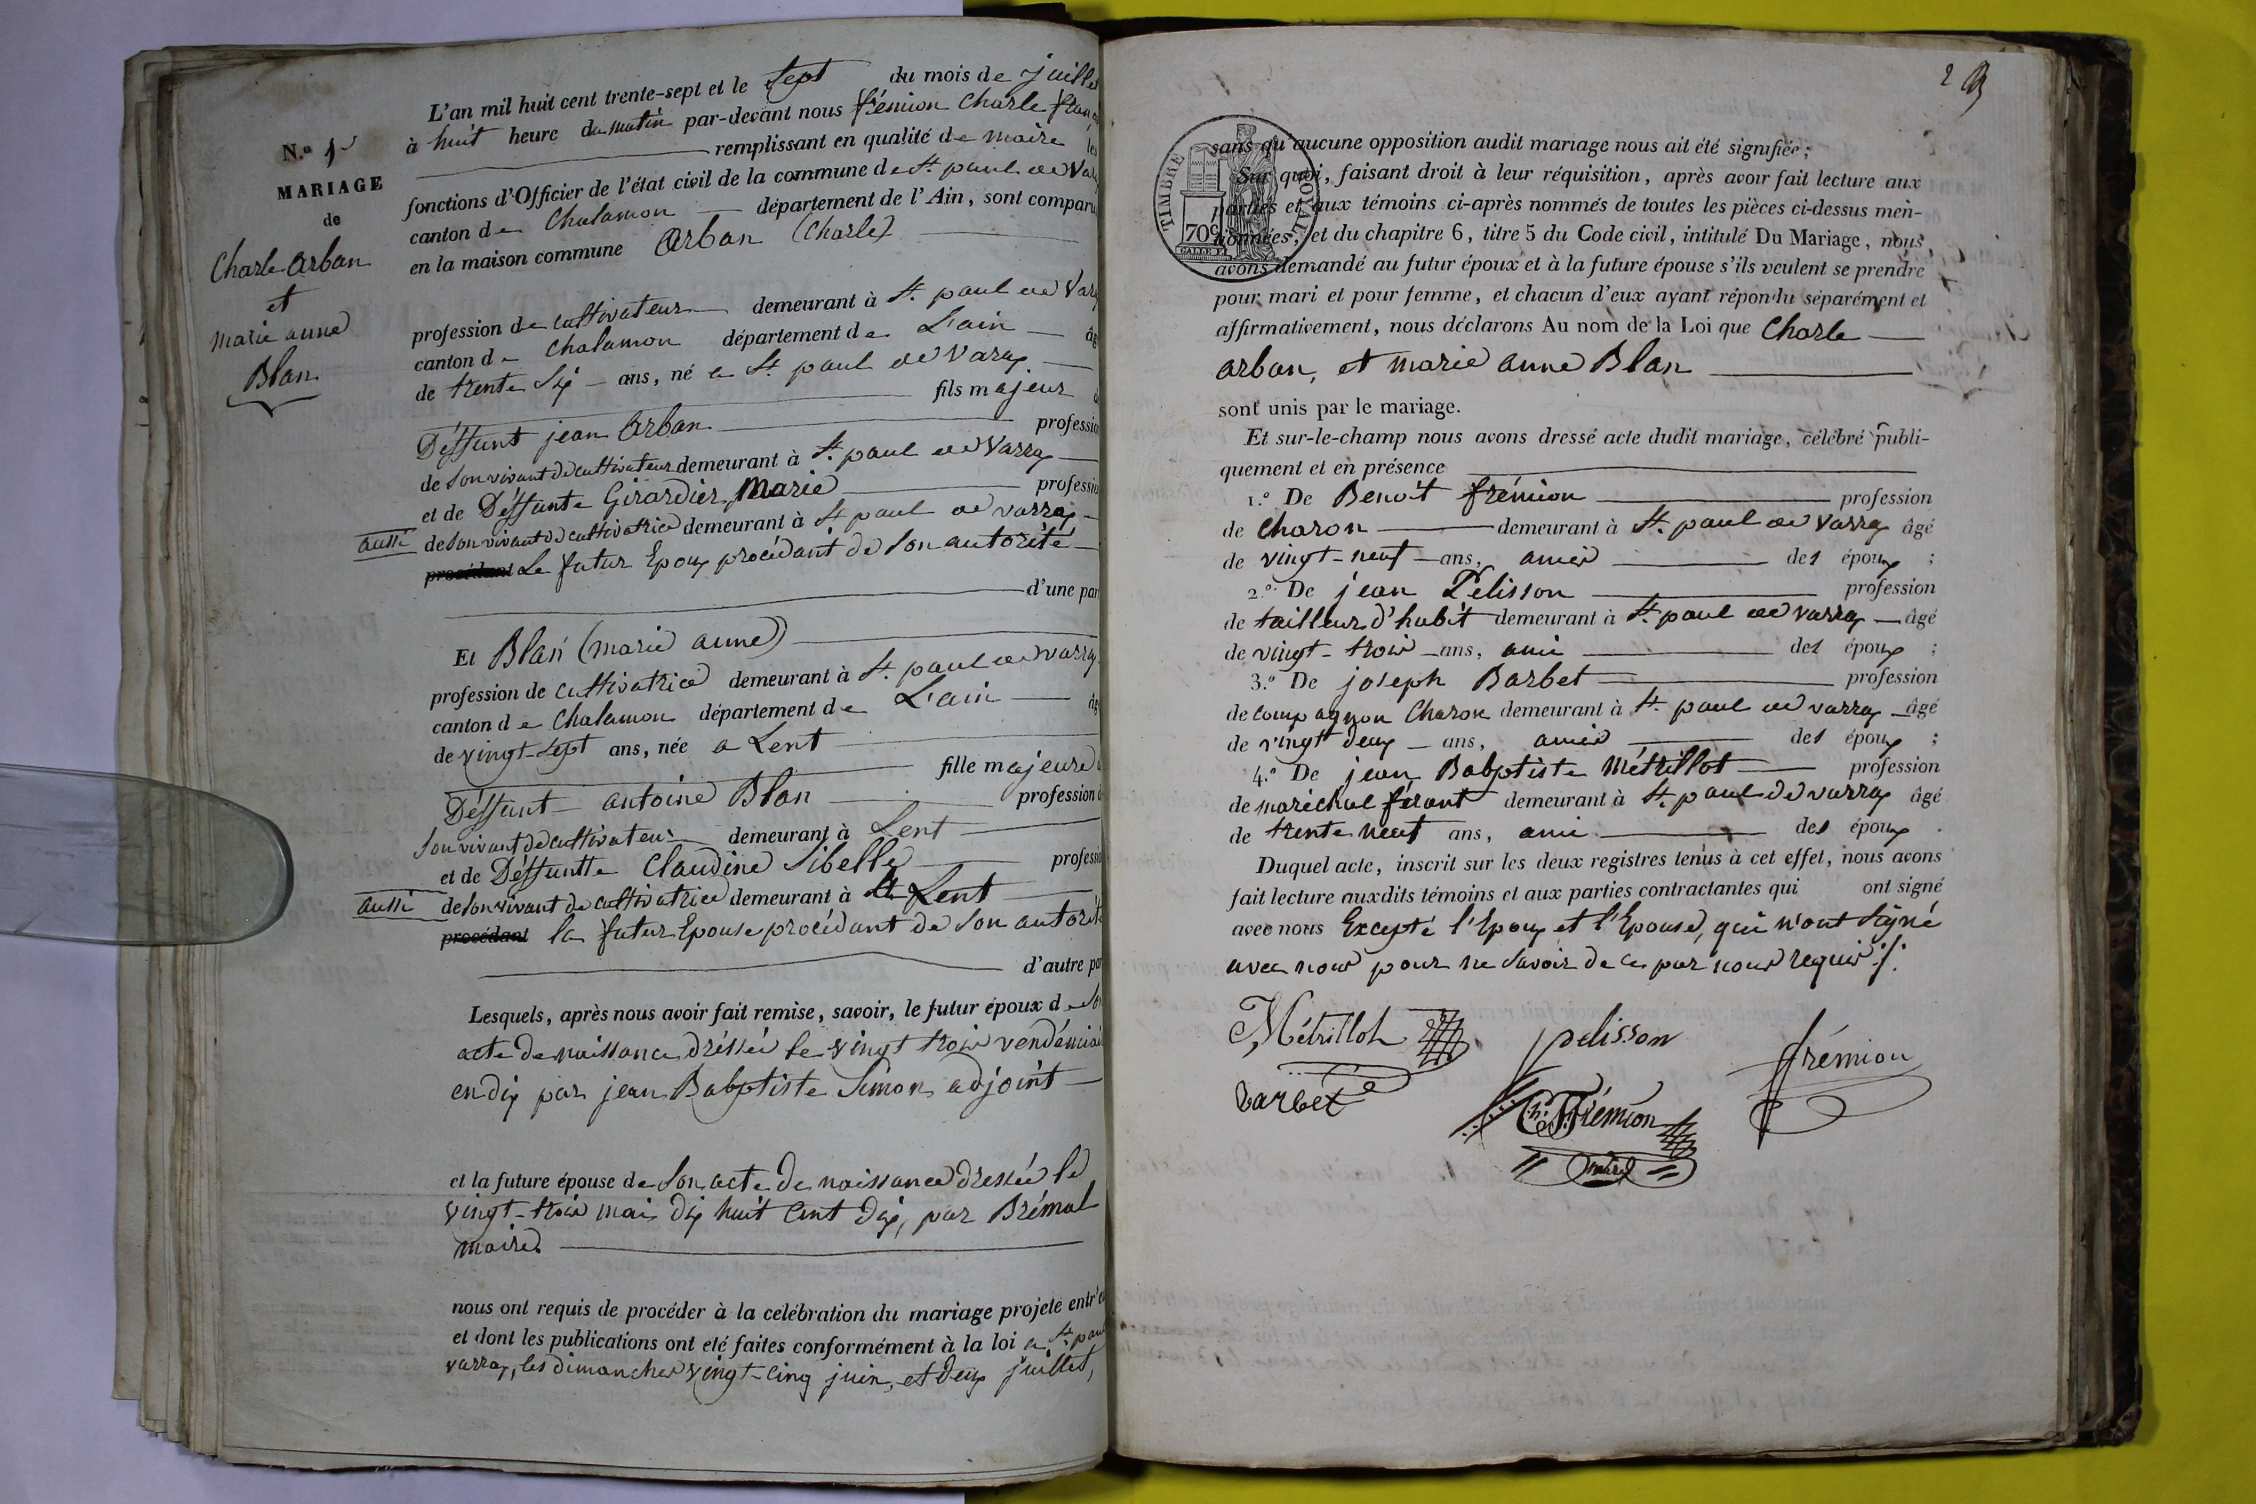 N.o
MARIAGE
de
Charle Arban
et
marie anne
Blan
L'an mil huit cent trente-sept et le sept du mois de juillet
à huit heure du matin par-devant nous frémion Charle
remplissant en qualité de maire les
fonctions d'Officier de l'état civil de la commune de St. paul de
canton de Chalamon département de l'Ain, sont comparu
en la maison commune Arban (Charle)
profession de cultivateur demeurant à St. paul de
canton de Chalamon département de L'ain
de trente six ans, né a St. paul de Varax
fils majeur
Déffunt jean Arban profession
de son vivant de cultivateur demeurant à St. paul de Varrax
et de Déffunte Girardier Marie profession
aussi de son vivant de cultivatrice demeurant à St paul de varrax
procédant Le futur Epoux procédant de son autorité
d'une part
Et Blan (marie anne)
profession de cultivatrice demeurant à St. paul de varrax
canton de Chalamon département de L'ain
de vingt-sept ans, née a Lent
fille majeure
Déffunt antoine Blan profession
son vivant de cultivateur demeurant à Lent
et de Déffuntte Claudine Sibelle profession
aussi de son vivant de cultivatrice demeurant à Lent
procédant la futur Epouse procédant de son autorité
d'autre part
Lesquels, après nous avoir fait remise, savoir, le futur époux de son
acte de naissance dréssée le vingt trois vendémiaire
en dix par jean Babptiste Simon adjoint
et la future épouse de son acte de naissance dressée le
vingt-trois mai dix huit cent dix, par Brémal
maire.
nous ont requis de procéder à la celébration du mariage projeté entr'eux
et dont les publications ont eté faites conformément à la loi a St. paul
varrax, les dimanches vingt-cinq juin, et deux juillet,
2
TIMBRE ROYAL
70c
sans qu'aucune opposition audit mariage nous ait été signifiée;
Sur quoi, faisant droit à leur réquisition, après avoir fait lecture aux
parties et aux témoins ci-après nommés de toutes les pièces ci-dessus men-
tionnées, et du chapitre 6, titre 5 du Code civil, intitulé Du Mariage, nous
avons demandé au futur époux et à la future épouse s'ils veulent se prendre
pour mari et pour femme, et chacun d'eux ayant répondu séparément et
affirmativement, nous déclarons Au nom de la Loi que Charle
arban, et marie anne Blan
sont unis par le mariage.
Et sur-le-champ nous avons dressé acte dudit mariage, célébré publi-
quement et en présence
1.o De Benoit frémion profession
de Charon demeurant à St. paul de varrax âgé
de vingt-neuf ans, amis des époux ;
2.o De jean Pelisson profession
de tailleur d'habit demeurant à St. paul de varrax âgé
de vingt-trois ans, ami des époux ;
3.o De joseph Barbet profession
de compagnon Charon demeurant à St. paul de varrax âgé
de vingt deux ans, amis des époux ;
4.o De jean Babptiste Métrillot profession
de maréchal férant demeurant à St. paul de varrax âgé
de trente neuf ans, ami des époux.
Duquel acte, inscrit sur les deux registres tenus à cet effet, nous avons
fait lecture auxdits témoins et aux parties contractantes qui ont signé
avec nous Excepté l'Epoux et l'Epouse, qui n'ont signé
avec nous pour ne savoir de ce par nous requis ./.
Métrillot
pelisson
frémion
barbet
Ch. F. Frémion
maire